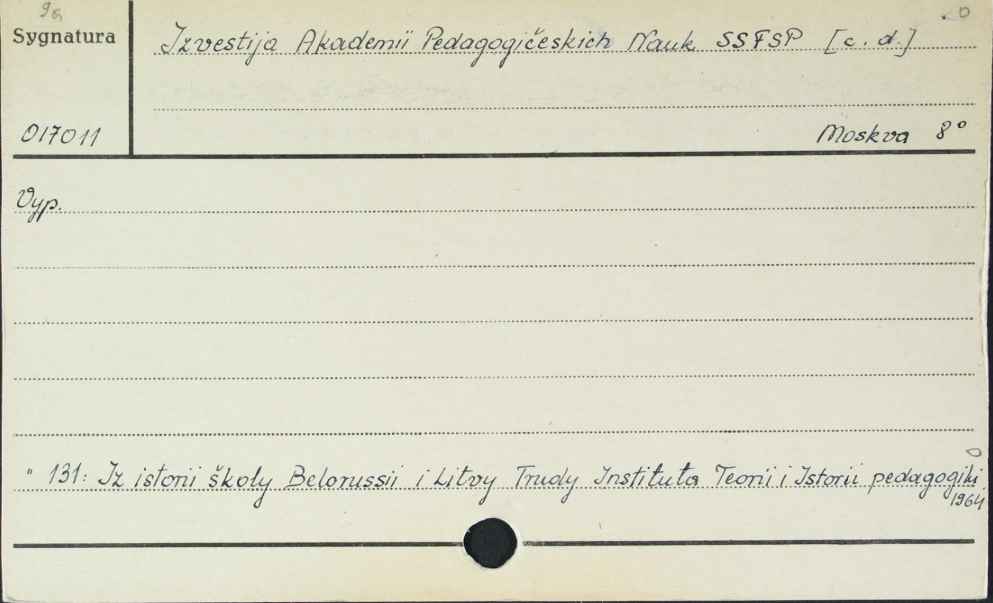 9a
Sygnatura
Izvestija Akademii Pedagogičeskich Nauk SSFSP [c. d.]
017011
Moskva 8°
Vyp.
" 131: Iz istorii školy Belorussii i Litvy Trudy Instituta Teorii i Istorii pedagogiki
1964